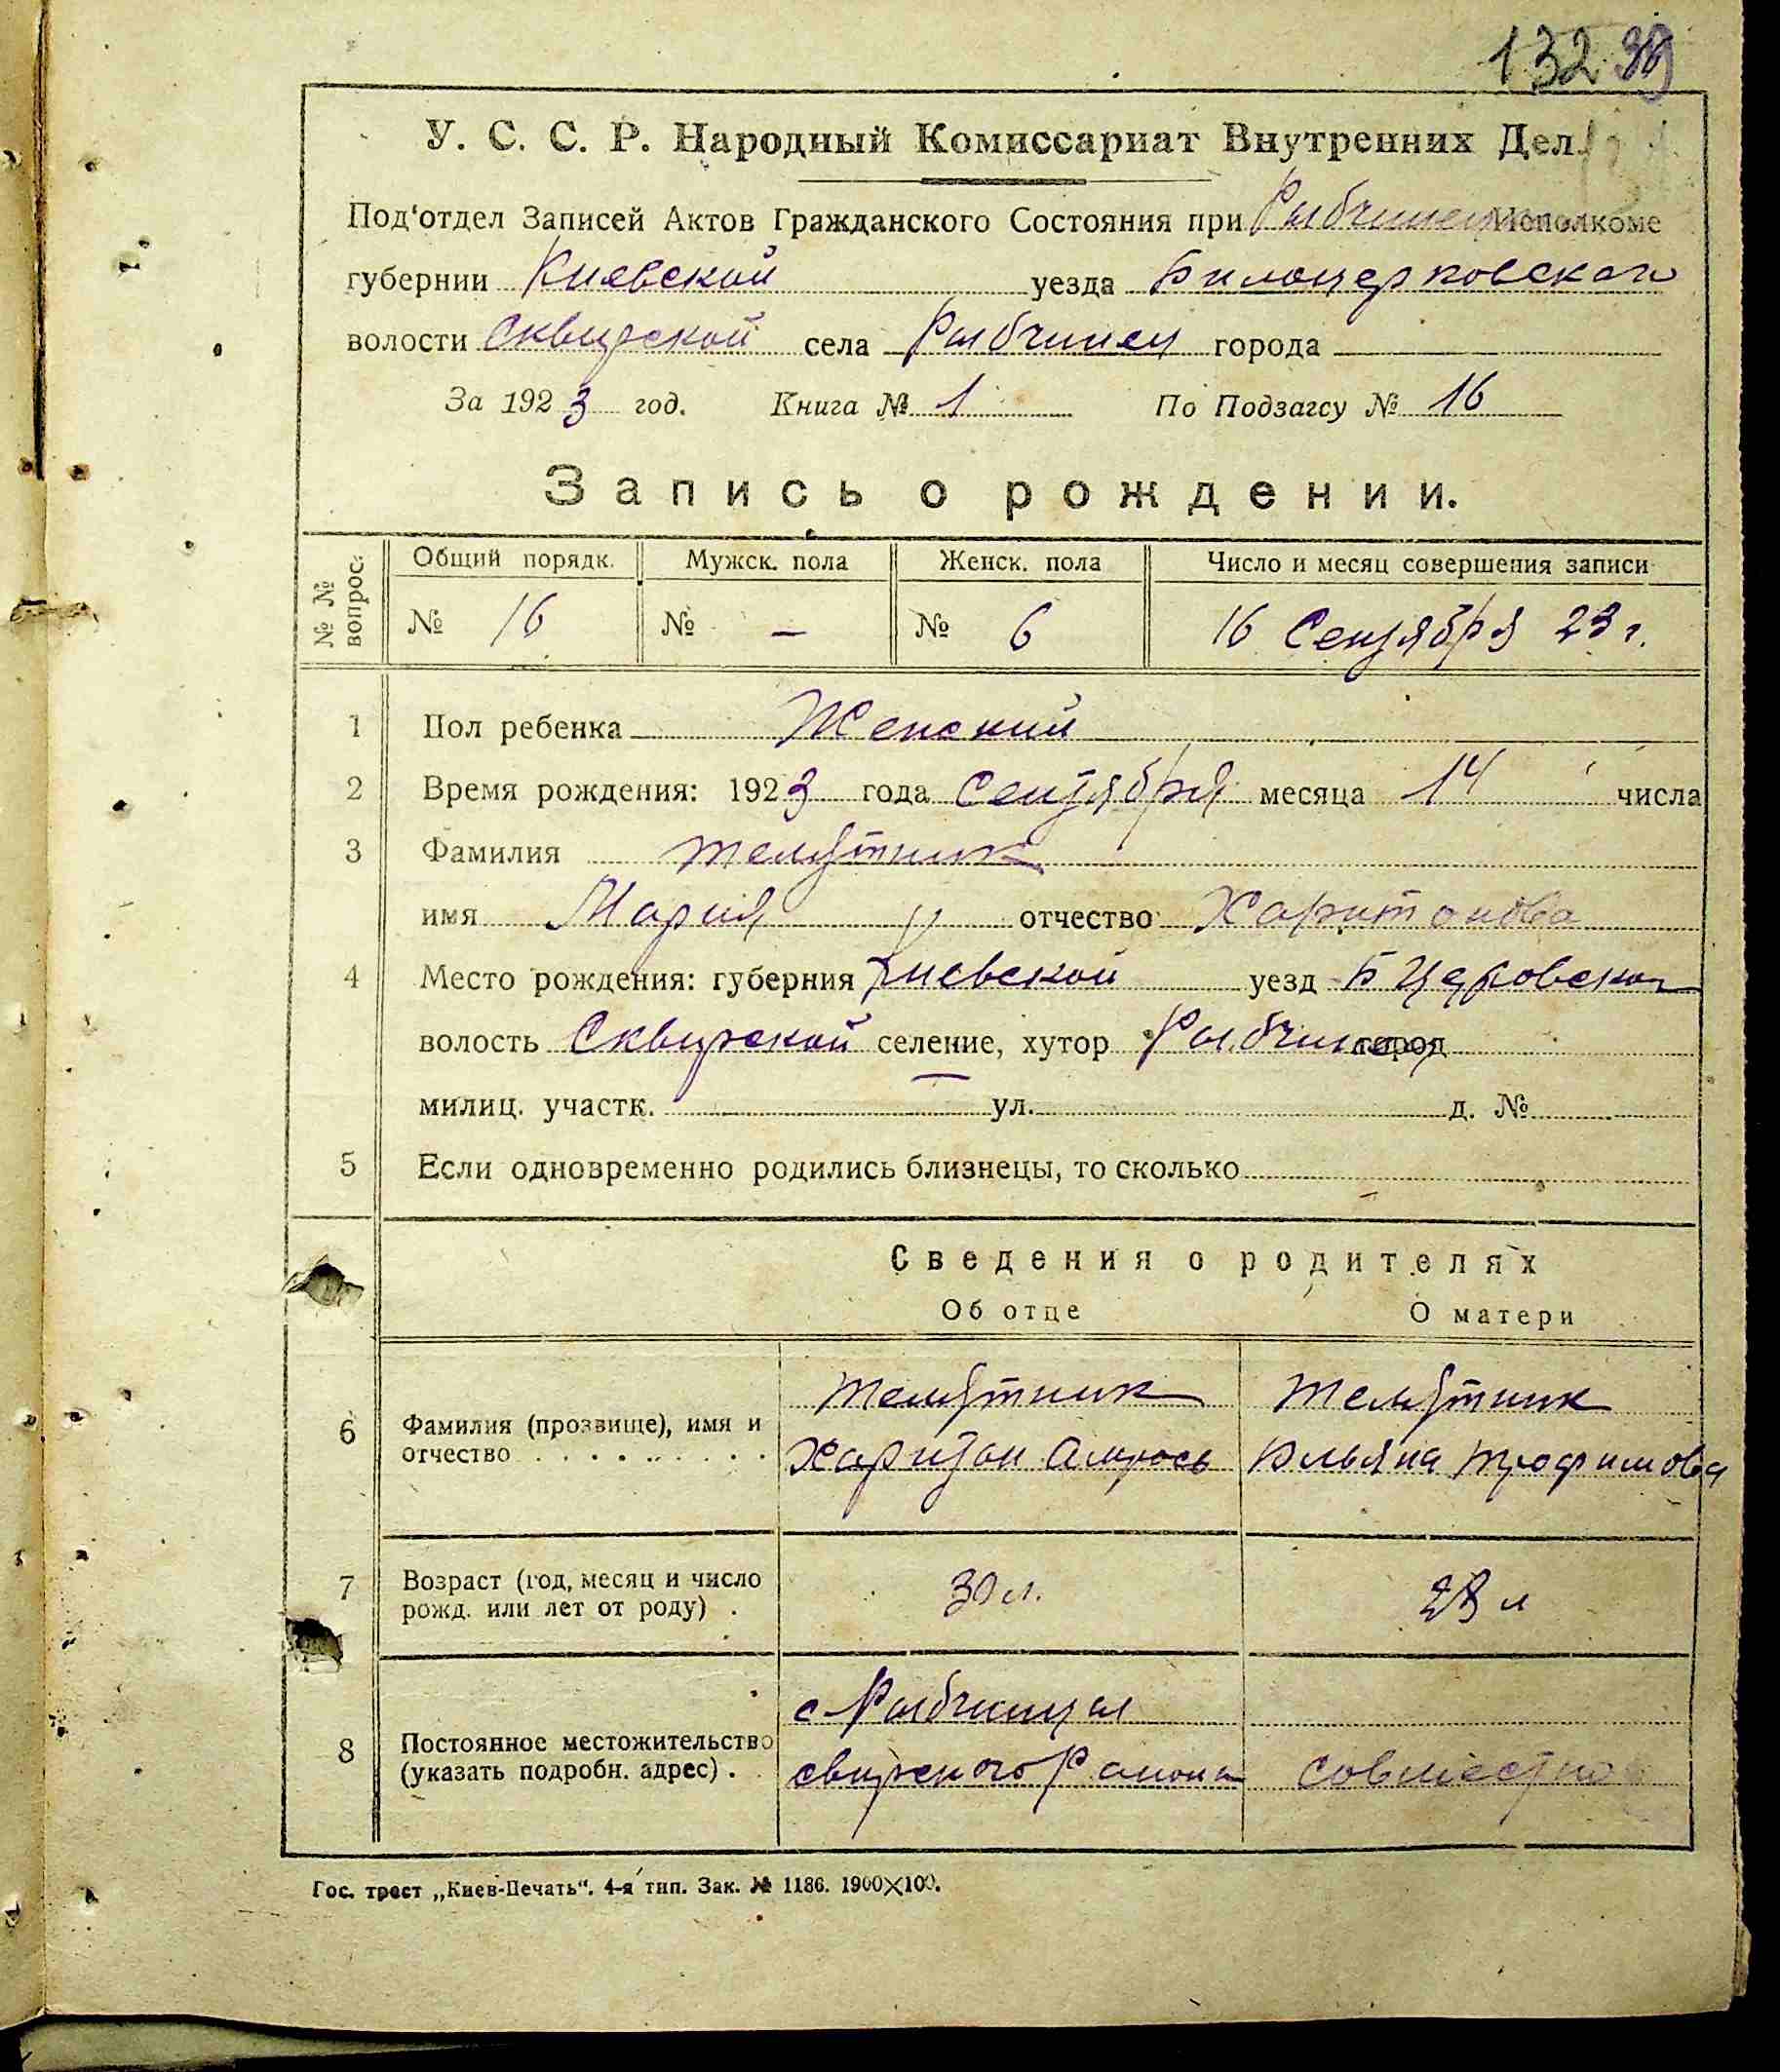 132 39
У. С. С. Р. Народный Комиссариат Внутренних Дел.
Под'отдел Записей Актов Гражданского Состояния при Исполкоме
губернии Киевской уезда Билоцерковскаго
волости Сквирской села Рыбчинец города
За 1923 год. Книга № 1 По Подзагсу № 16
Запись о рождении.
№№ вопрос. Общий порядк. Мужск. пола Женск. пола Число и месяц совершения записи
№ 16 № — № 6 16 Сентября 23 г.
1 Пол ребенка Женский
2 Время рождения: 1923 года Сентября месяца 14 числа
3 Фамилия Телятник
имя Мария отчество Харитонова
4 Место рождения: губерния Киевской уезд
волость Сквирской селение, хутор город
милиц. участк. ул. д. №
5 Если одновременно родились близнецы, то сколько —
Сведения о родителях
Об отце О матери
Телятник Телятник
6 Фамилия (прозвище), имя и
отчество . . . . . . . . . Харитон Трофимова
7 Возраст (год, месяц и число
рожд. или лет от роду) . 30 л. л
с Рыбчинцы
8 Постоянное местожительство
(указать подробн. адрес) . свирского Района совместно
Гос. трест „Киев-Печать“. 4-я тип. Зак. № 1186. 1900×100.